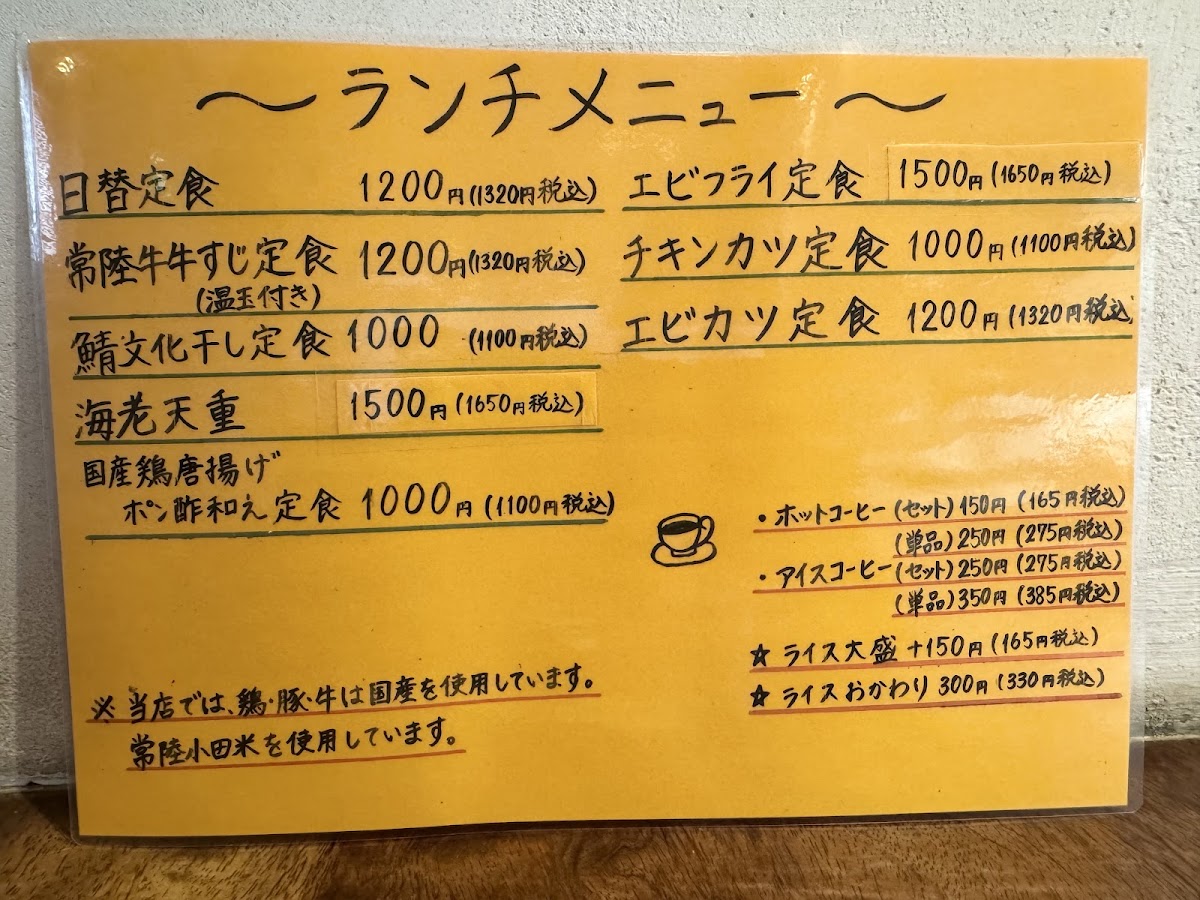 〜ランチメニュー〜
日替定食 1200円(1320円税込)
常陸牛牛すじ定食 1200円(1320円税込)
(温玉付き)
鯖文化干し定食 1000 (1100円税込)
海老天重 1500円(1650円税込)
国産鶏唐揚げ
ポン酢和え定食 1000円(1100円税込)
エビフライ定食 1500円(1650円税込)
チキンカツ定食 1000円(1100円税込)
エビカツ定食 1200円(1320円税込)
・ホットコーヒー(セット)150円(165円税込)
(単品)250円(275円税込)
・アイスコーヒー(セット)250円(275円税込)
(単品)350円(385円税込)
☆ライス大盛+150円(165円税込)
☆ライスおかわり 300円(330円税込)
※当店では、鶏・豚・牛は国産を使用しています。
常陸小田米を使用しています。